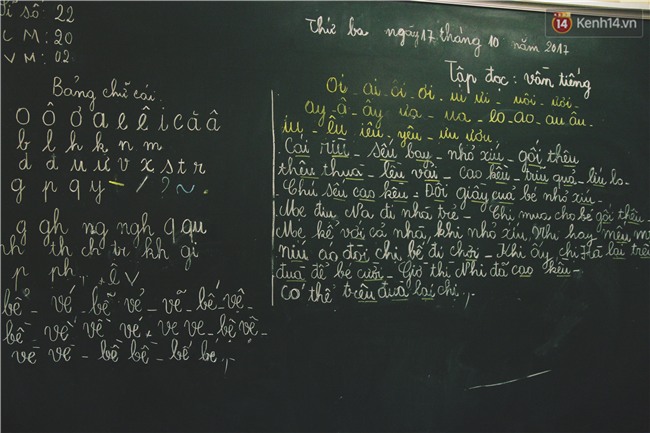 Sĩ số: 22
C M: 20
V M: 02
14 Kenh14.vn
Thứ ba ngày 17 tháng 10 năm 2017
Tập đọc: vần tiếng
Bảng chữ cái:
O Ô Ơ a e ê i c ă â
b l h k n m
d đ u ư v x s t r
g p q y - / ? ~ .
g gh ng ngh q qu
nh th ch tr kh gi
p ph
ê v
bể - vé - bẽ vẻ - vẽ - bế vê -
bề vé
vẽ vè - bề bề - bế bé
Oi - ai - ôi - ơi - ui ưi - uôi - ươi -
ay - â - ây ưa - ua - eo - ao - au âu -
iu - êu iêu - yêu - ưu ươu -
Cái rìu - sếu bay - nhỏ xíu - gối thêu
thêu thùa - lều vải - cao kều - trĩu quả - líu lo -
Chú sếu cao kều - Đôi giày quả bé nhỏ xíu -
Mẹ đìu Na đi nhà trẻ - Chị mua cho bé gối thêu -
Mẹ kể với cả nhà, khi nhỏ xíu, Nhi hay mếu, m
níu áo đòi chị bế đi chơi - Khi ấy, chị Hà lại trêu
đùa để bé cười - Giờ thì Nhi đã cao kều -
có thể trêu đùa lại chị.